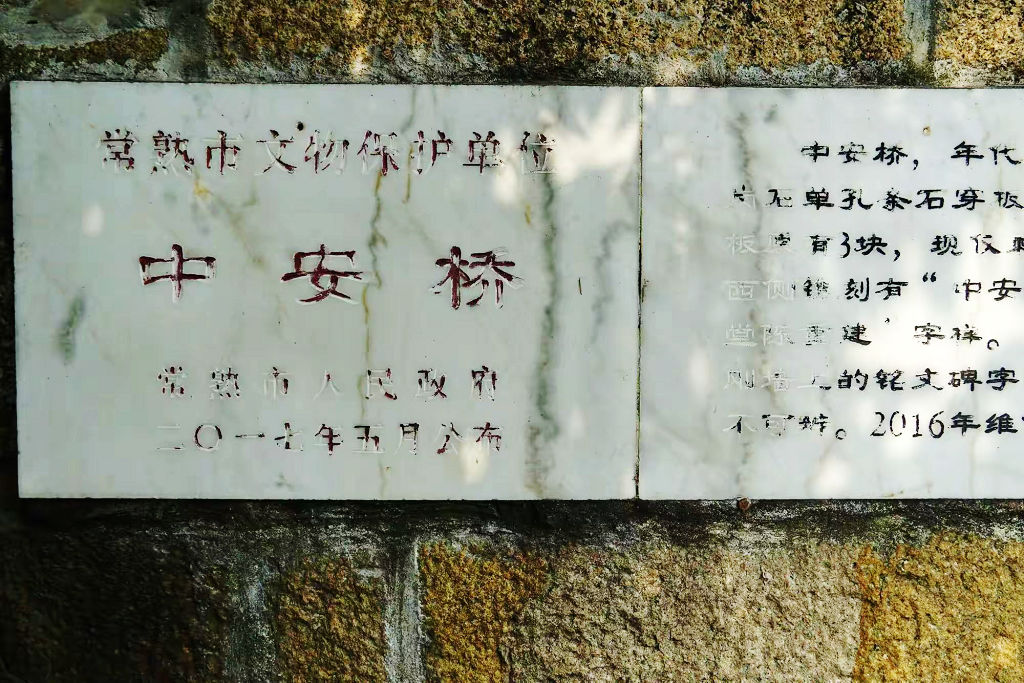 常熟市文物保护单位
中安桥
常熟市人民政府
二〇一七年五月公布
中安桥，年代
石单孔条石穿板
板 有3块，现仅
西侧 刻有“中安
堂陈重建”字样。
的铭文碑字
不可辨。2016年维